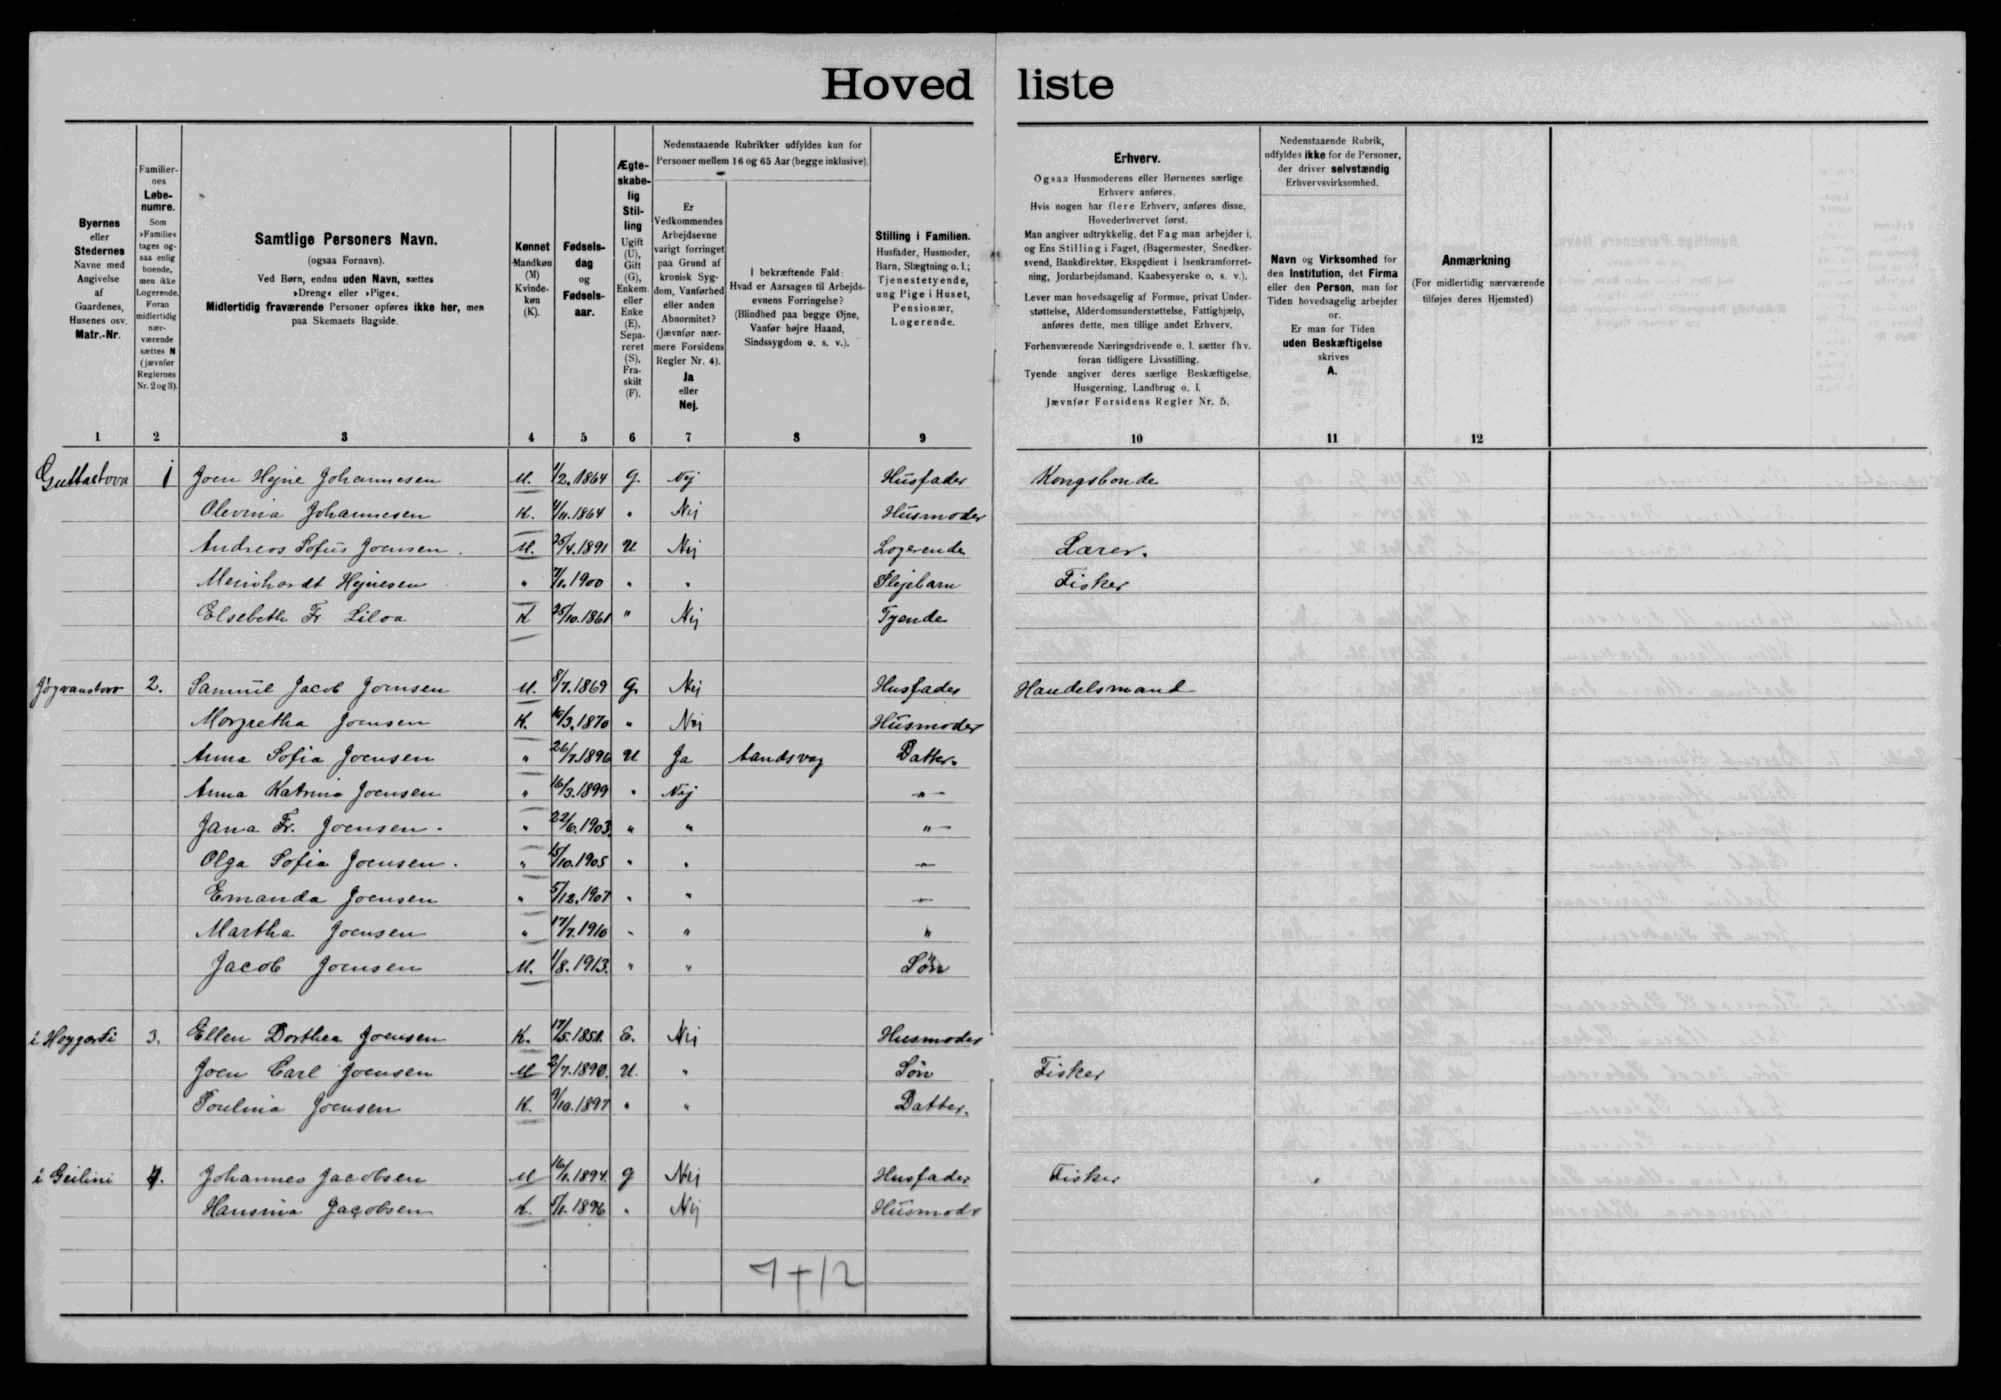 Hovedliste
Byernes
eller
Stedernes
Navne med
Angivelse
af
Gaardenes,
Husenes osv.
Matr.-Nr.
Familier-
nes
Løbe-
numre.
Som
»Familie«
tages og-
saa enlig
boende,
men ikke
Logerende.
Foran
midlertidig
nær-
værende
sættes N
(jævnfør
Reglernes
Nr. 2 og 3).
Samtlige Personers Navn.
(ogsaa Fornavn).
Ved Børn, endnu uden Navn, sættes
»Dreng« eller »Pige«.
Midlertidig fraværende Personer opføres ikke her, men
paa Skemaets Bagside.
Kønnet
Mandkøn
(M)
Kvinde-
køn
(K).
Fødsels-
dag
og
Fødsels-
aar.
Ægte-
skabe-
lig
Stil-
ling
Ugift
(U),
Gift
(G),
Enkem.
eller
Enke
(E),
Sepa-
reret
(S),
Fra-
skilt
(F).
Nedenstaaende Rubrikker udfyldes kun for
Personer mellem 16 og 65 Aar (begge inklusive).
Er
Vedkommendes
Arbejdsevne
varigt forringet
paa Grund af
kronisk Syg-
dom, Vanførhed
eller anden
Abnormitet?
(Jævnfør nær-
mere Forsidens
Regler Nr. 4).
Ja
eller
Nej.
I bekræftende Fald:
Hvad er Aarsagen til Arbejds-
evnens Forringelse?
(Blindhed paa begge Øjne,
Vanfør højre Haand,
Sindssygdom o. s. v.).
Stilling i Familien.
Husfader, Husmoder,
Barn, Slægtning o. l.;
Tjenestetyende,
ung Pige i Huset,
Pensionær,
Logerende.
Erhverv.
Ogsaa Husmoderens eller Børnenes særlige
Erhverv anføres.
Hvis nogen har flere Erhverv, anføres disse,
Hovederhvervet først.
Man angiver udtrykkelig, det Fag man arbejder i,
og Ens Stilling i Faget, (Bagermester, Snedker-
svend, Bankdirektør, Ekspedient i Isenkramforret-
ning, Jordarbejdsmand, Kaabesyerske o. s. v.).
Lever man hovedsagelig af Formue, privat Under-
støttelse, Alderdomsunderstøttelse, Fattighjælp,
anføres dette, men tillige andet Erhverv.
Forhenværende Næringsdrivende o. l. sætter fhv.
foran tidligere Livsstilling.
Tyende angiver deres særlige Beskæftigelse,
Husgerning, Landbrug o. l.
Jævnfør Forsidens Regler Nr. 5.
Nedenstaaende Rubrik,
udfyldes ikke for de Personer,
der driver selvstændig
Erhvervsvirksomhed.
Navn og Virksomhed for
den Institution, det Firma
eller den Person, man for
Tiden hovedsagelig arbejder
for.
Er man for Tiden
uden Beskæftigelse
skrives
A.
Anmærkning
(For midlertidig nærværende
tilføjes deres Hjemsted)
1 2 3 4 5 6 7 8 9 10 11 12
Guttastova 1 Joen Hejne Johannesen M. 1/2.1864 G. Nej Husfader Kongsbonde
Olevina Johannesen K. 4/11.1864 " Nej Husmoder
Andreas Sofus Joensen. M. 25/4.1891 U Nej Logerende Lærer.
Meinhardt Hejnesen " 7/1.1900 " " Plejebarn Fisker
Elsebeth Fr K 25/10.1861 " Nej Tyende
Jógvanstovo 2. Samúel Jacob Joensen M. 8/7.1869 G. Nej Husfader Handelsmand
Margretha Joensen K. 15/3.1870 " Nej Husmoder
Anna Sofia Joensen " 26/7.1896 U Ja Aandsvag Datter.
Anna Katrina Joensen " 16/3.1899 " Nej "
Jana Fr. Joensen. " 22/6.1903. " " "
Olga Sofia Joensen. " 15/10.1905 " " "
Emanda Joensen " 5/12.1907 " " "
Martha Joensen " 17/7.1910 " " "
Jacob Joensen M. 1/8.1913. " " Søn
i Hoygardi 3. Ellen Dorthea Joensen K. 17/5.1851. E. Nej Husmoder
Joen Carl Joensen M 2/7.1890. U. " Søn Fisker
Poulina Joensen K. 9/10.1897 " " Datter.
i Geilini 4. Johannes Jacobsen M 16/1.1894. G Nej Husfader Fisker
Hansina Jacobsen K. 5/1.1896 " Nej Husmodr
7+12